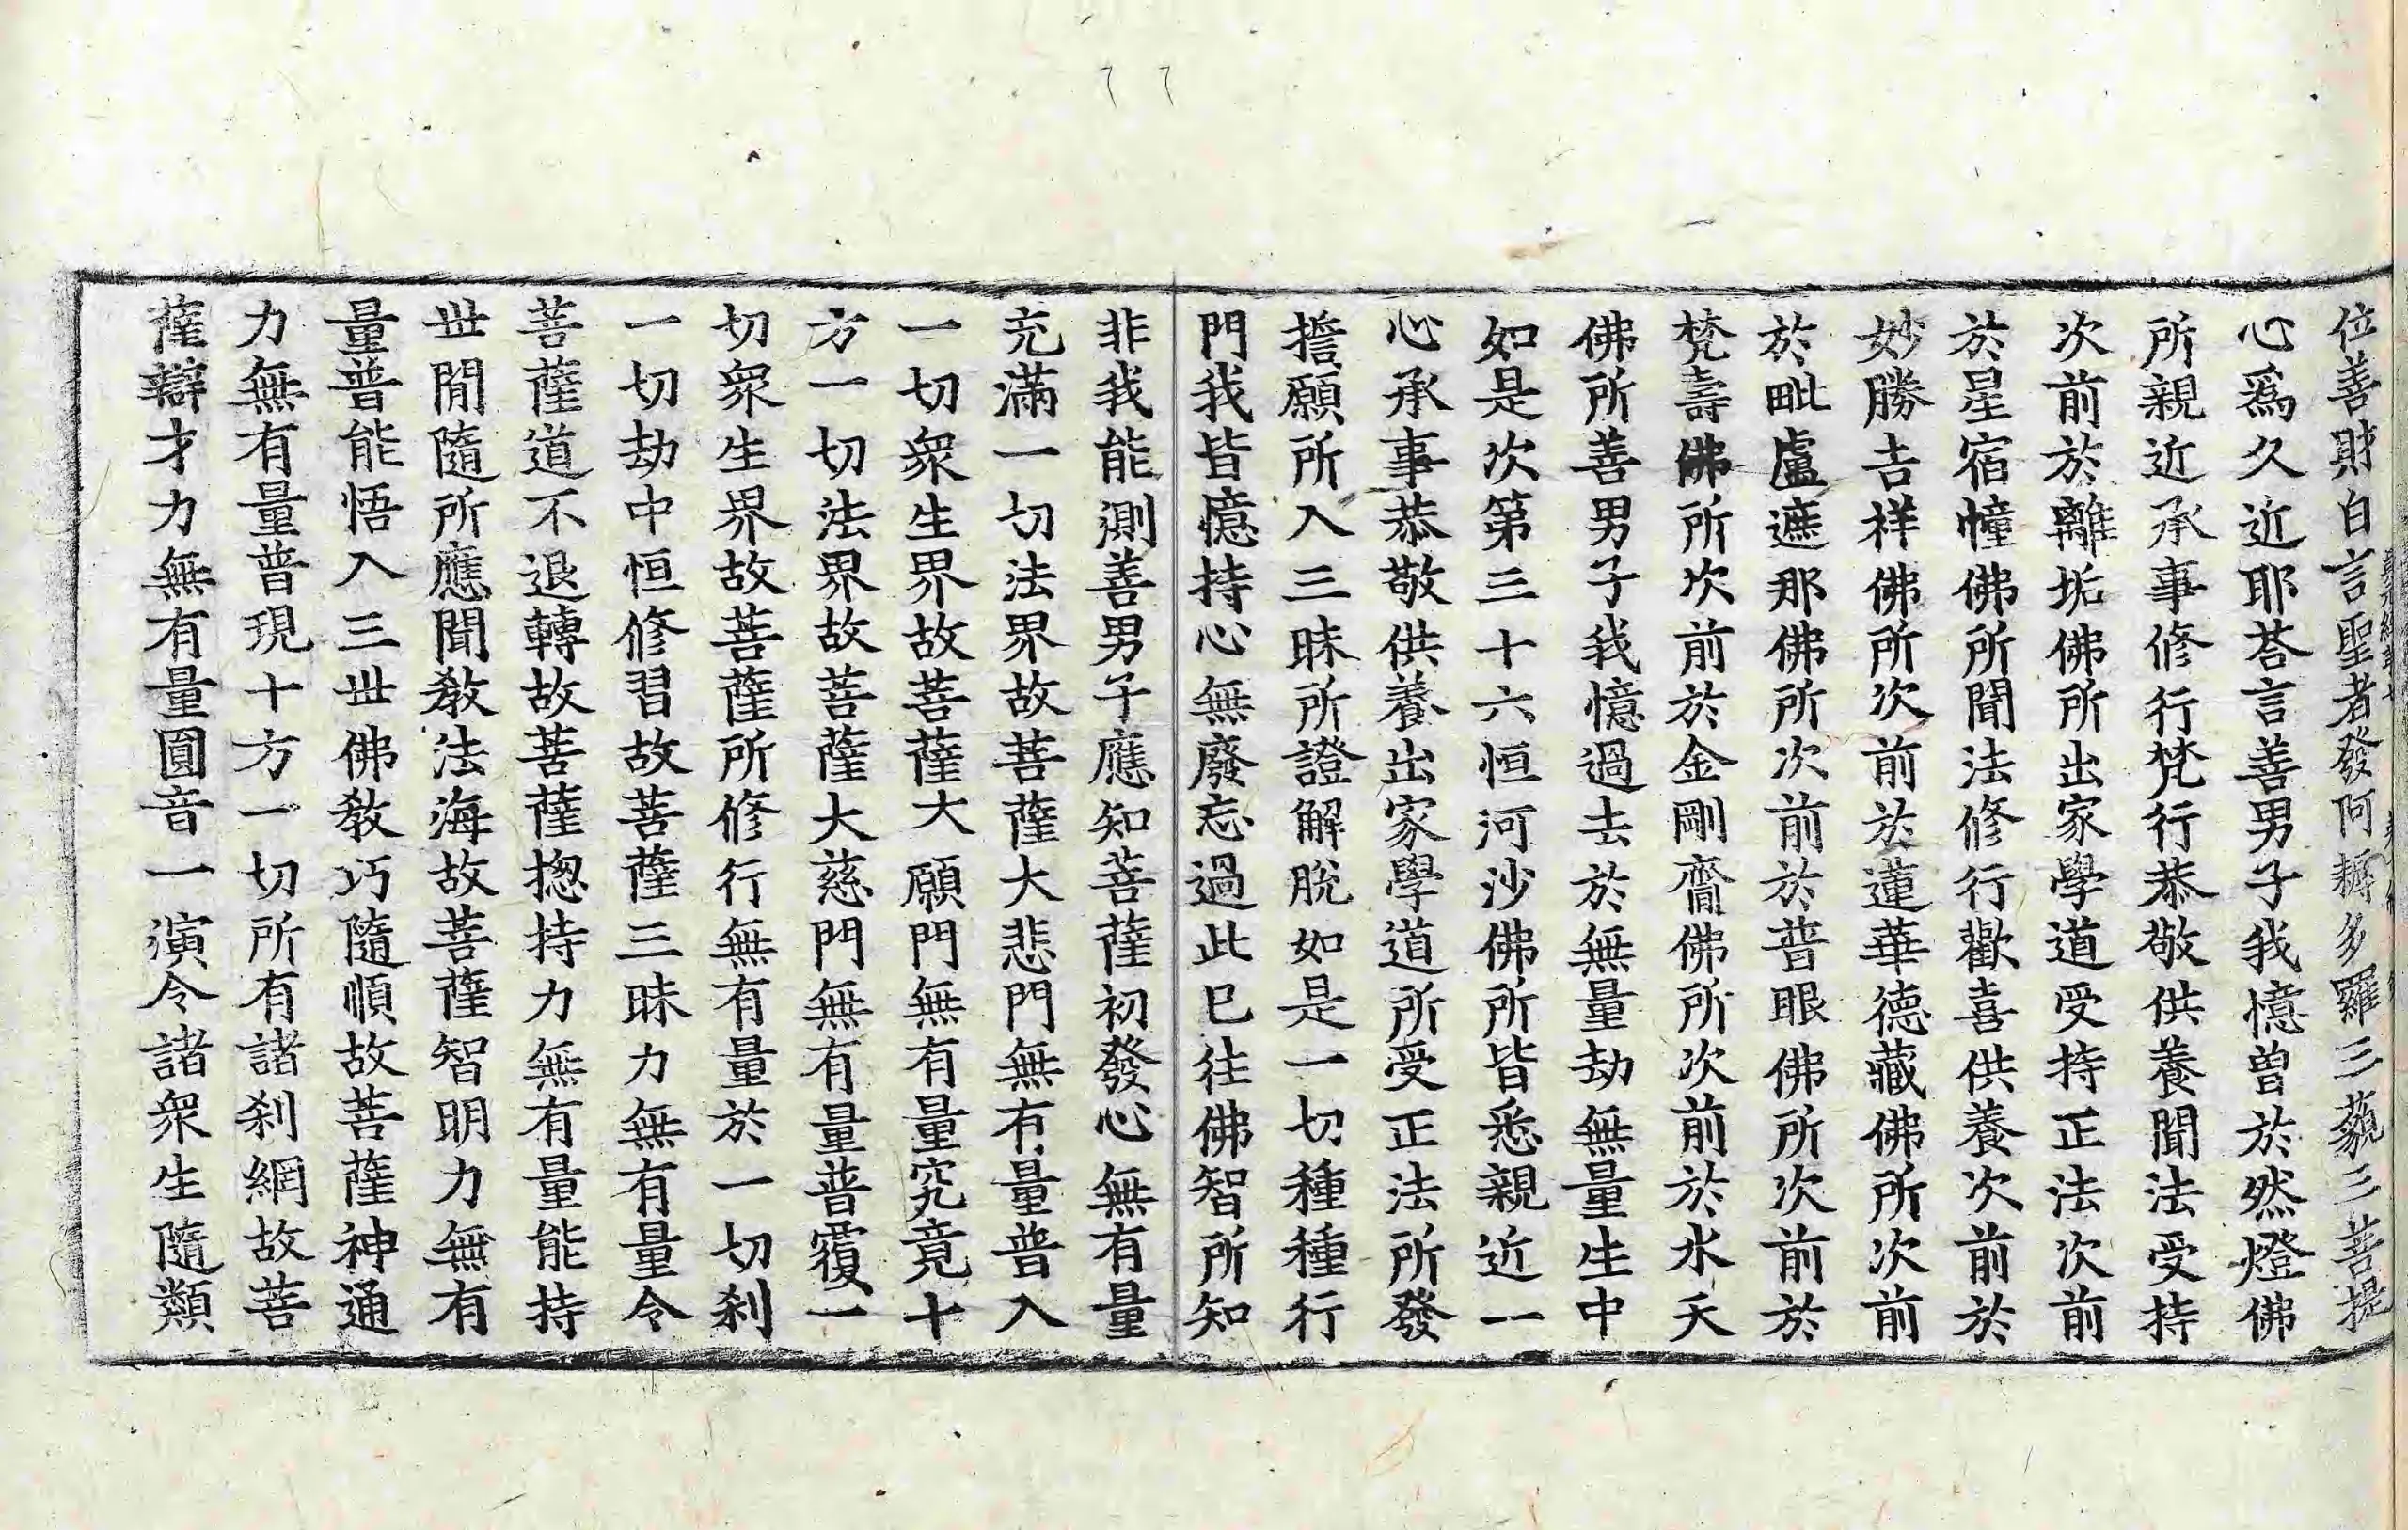 位善財白言聖者發阿耨多羅三藐三菩提
心爲久近耶荅言善男子我憶曽於然燈佛
所親近承事修行梵行恭敬供養聞法受持
次前於離垢佛所出家學道受持正法次前
於星宿幢佛所聞法修行歡喜供養次前於
妙勝吉祥佛所次前於蓮華德藏佛所次前
於毗盧遮那佛所次前於普眼佛所次前於
梵壽佛所次前於金剛齎佛所次前於水天
佛所善男子我憶過去於無量劫無量生中
如是次第三十六恒河沙佛所皆悉親近一
心承事恭敬供養出家學道所受正法所發
擔願所入三昧所證解脫如是一切種種行
門我皆憶持心無廢忘過此已往佛智所知
非我能測善男子應知菩薩初發心無有量
充滿一切法界故菩薩大悲門無有量普入
一切衆生界故菩薩大願門無有量究竟十
方一切法界故菩薩大慈門無有量普覆一
切衆生界故菩薩所修行無有量於一切刹
一切劫中恒修習故菩薩三昧力無有量令
菩薩道不退轉故菩薩揔持力無有量能持
世閒隨所應聞教法海故菩薩智明力無有
量普能悟入三世佛教巧隨順故菩薩神通
力無有量普現十方一切所有諸刹網故菩
薩辯才力無有量圓音一演令諸衆生隨類